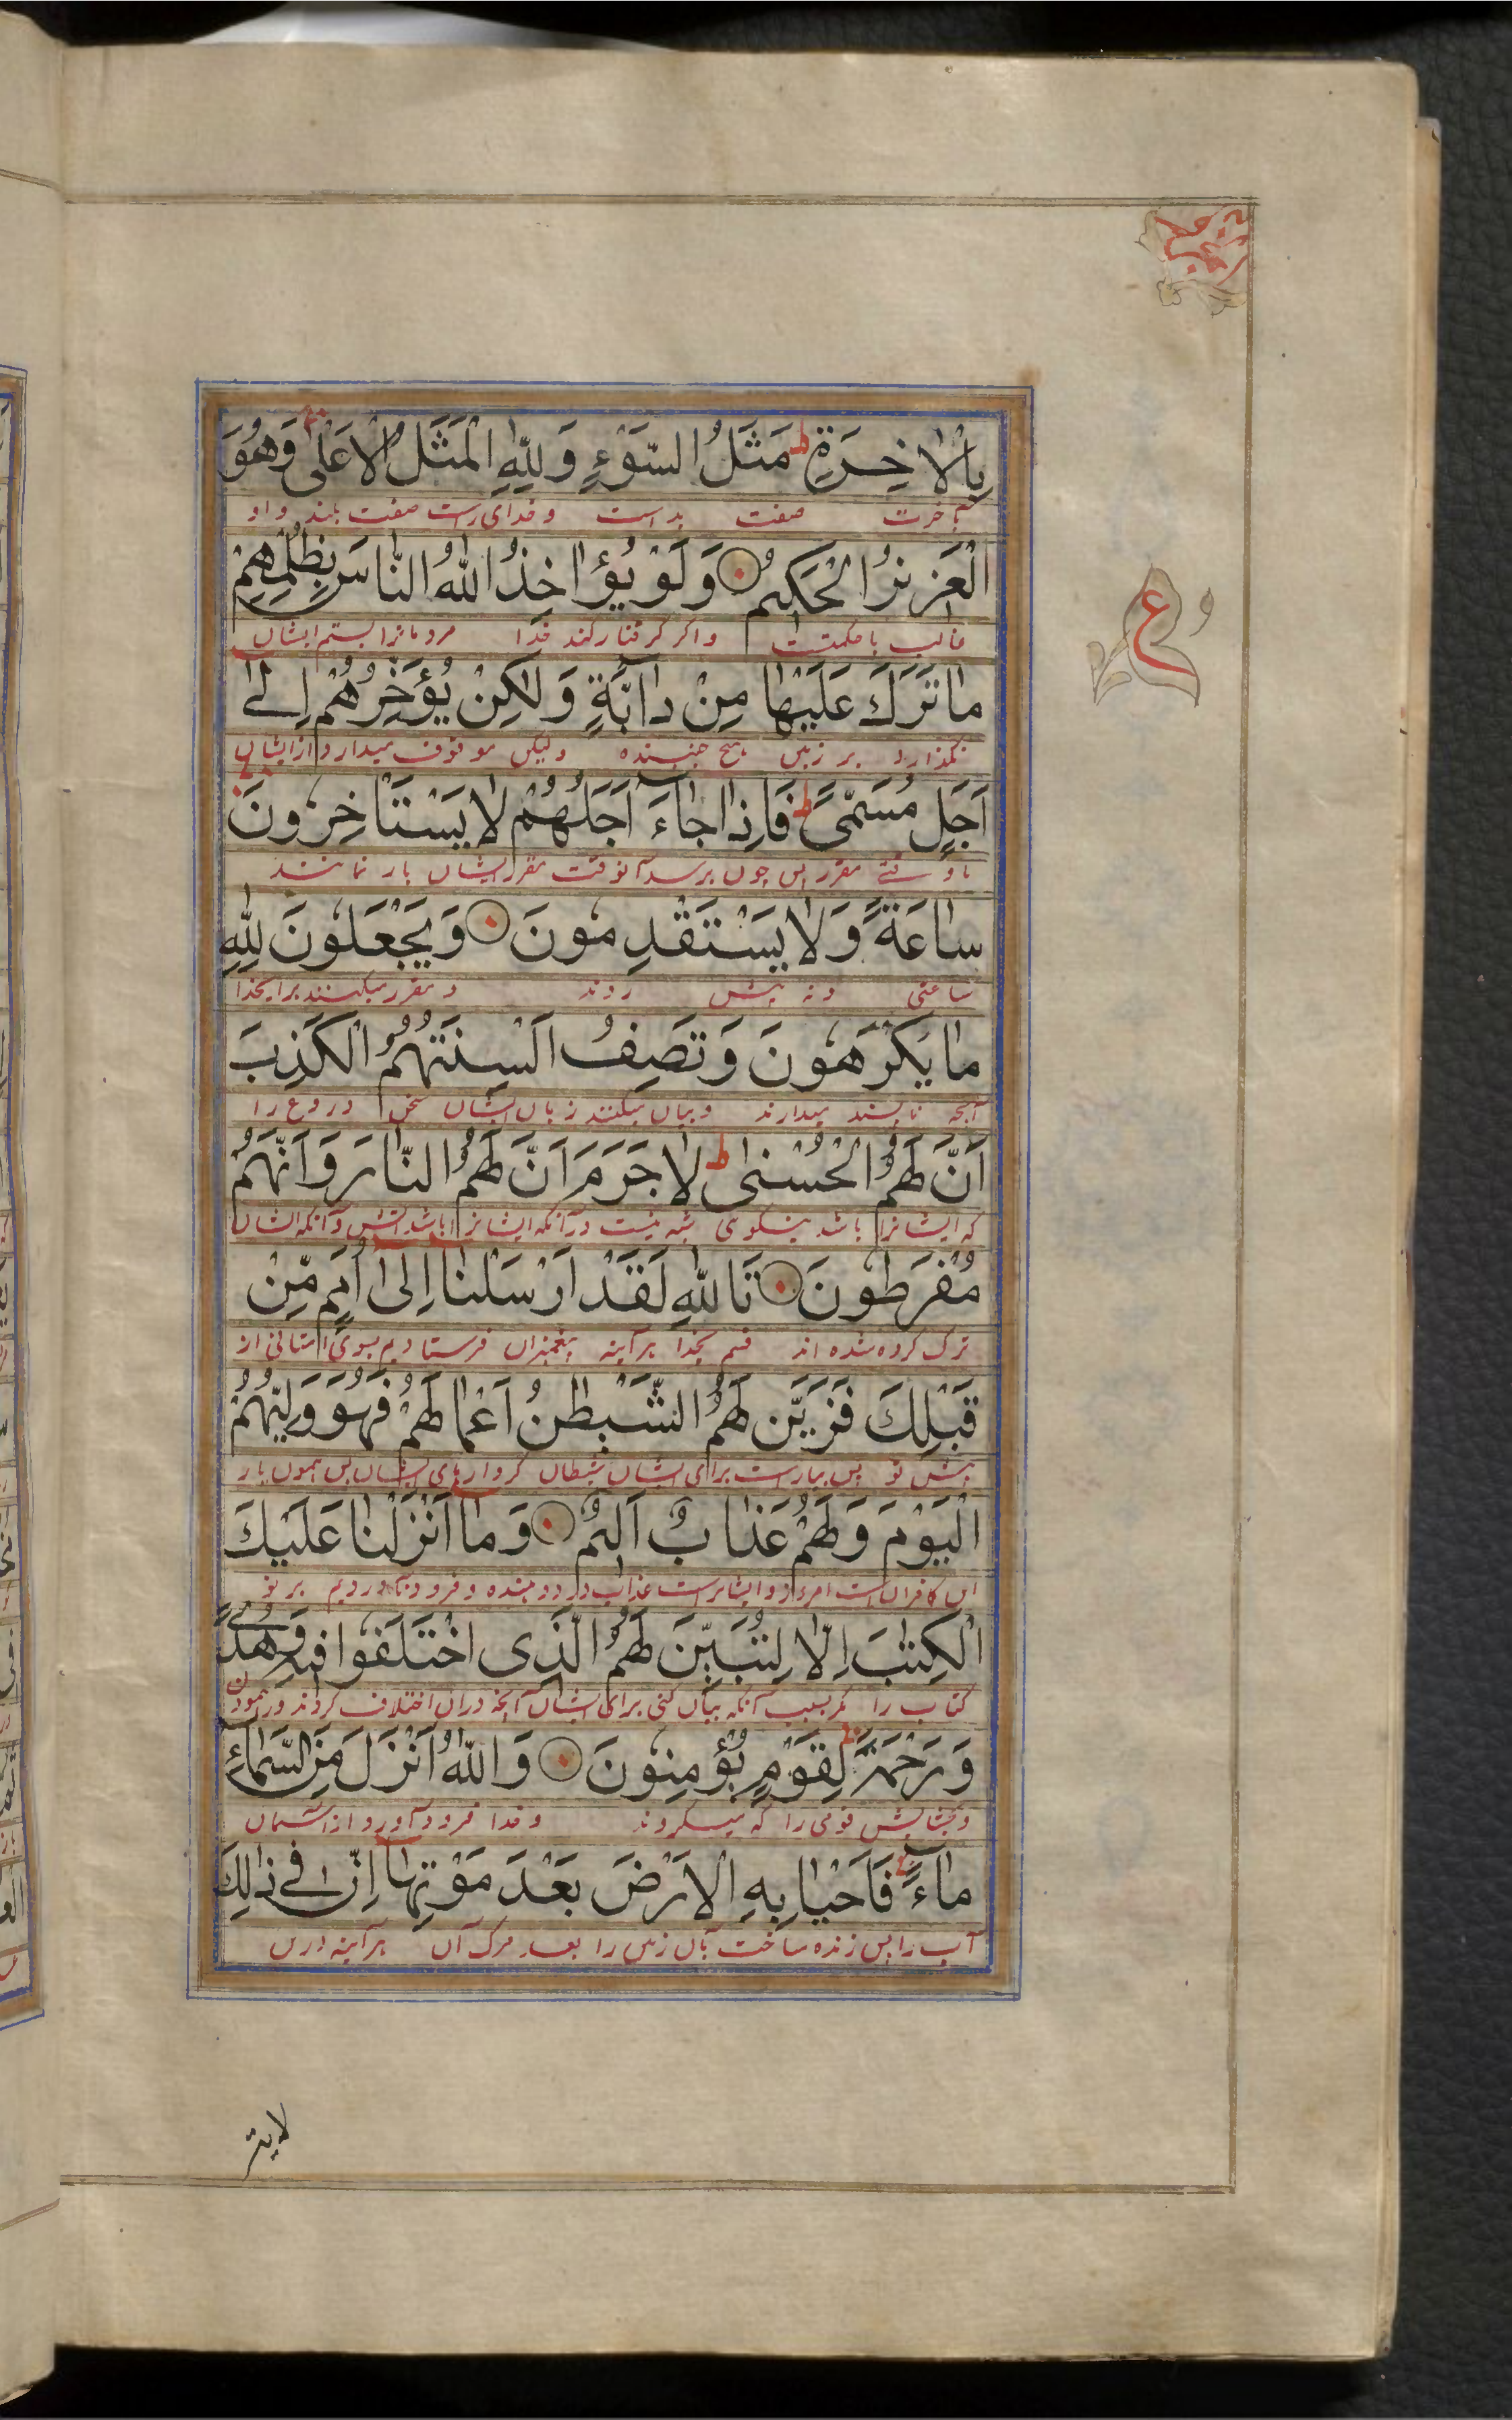 بِالْاٰخِرَةِ ط مَثَلُ السَّوْءِ وَلِلّٰهِ الْمَثَلُ الْاَعْلٰى وَهُوَ
بآخرت صفت بد است و خدای راست صفت بلند و او
الْعَزِيزُ الْحَكِيْمُ وَلَوْ يُؤَاخِذُ اللّٰهُ النَّاسَ بِظُلْمِهِمْ
غالب با حکمتست و اگر گرفتار کند خدا مردمانرا بستم ایشان
مَا تَرَكَ عَلَيْهَا مِنْ دَآبَّةٍ وَلٰكِنْ يُؤَخِّرُهُمْ اِلٰٓى
نگذارد بر زمین هیچ جنبنده ولیکن موقوف میدارد از ایشان
اَجَلٍ مُسَمًّى ط فَاِذَا جَآءَ اَجَلُهُمْ لَا يَسْتَاْخِرُوْنَ
تا وقتے مقرر پس چون برسد آنوقت مقرر ایشان باز نمانند
سَاعَةً وَلَا يَسْتَقْدِمُوْنَ وَيَجْعَلُوْنَ لِلّٰهِ
ساعتی و نه پیش روند و مقرر میکنند برای خدا
مَا يَكْرَهُوْنَ وَتَصِفُ اَلْسِنَتُهُمُ الْكَذِبَ
آنچه ناپسند میدارند و بیان میکنند زبان ایشان سخن دروغ را
اَنَّ لَهُمُ الْحُسْنٰى ط لَا جَرَمَ اَنَّ لَهُمُ النَّارَ وَاَنَّهُمْ
که ایشانرا باشد نیکوی شبه نیست در آنکه ایشانرا باشد آتش و آنکه ایشان
مُفْرَطُوْنَ تَاللّٰهِ لَقَدْ اَرْسَلْنَا اِلٰٓى اُمَمٍ مِّنْ
ترک کرده شده اند قسم بخدا هر آینه پیغمبران فرستادیم بسوی امتانی از
قَبْلِكَ فَزَيَّنَ لَهُمُ الشَّيْطٰنُ اَعْمَالَهُمْ فَهُوَ وَلِيُّهُمُ
پیش تو پس بیاراست برای ایشان شیطان کردارهای ایشان پس همون یار
الْيَوْمَ وَلَهُمْ عَذَابٌ اَلِيْمٌ وَمَآ اَنْزَلْنَا عَلَيْكَ
این کافران است امروز و ایشانراست عذاب درد دهنده و فرود نیاوردیم بر تو
الْكِتٰبَ اِلَّا لِتُبَيِّنَ لَهُمُ الَّذِى اخْتَلَفُوْا فِيْهِ وَهُدًى
کتاب را مگر بسبب آنکه بیان کنی برای ایشان آنچه دران اختلاف کردند و رهنمودن
وَرَحْمَةً لِّقَوْمٍ يُّؤْمِنُوْنَ وَاللّٰهُ اَنْزَلَ مِنَ السَّمَآءِ
و بخشایش قومی را که میگروند و خدا فرود آورد از آسمان
مَآءً فَاَحْيَا بِهِ الْاَرْضَ بَعْدَ مَوْتِهَا اِنَّ فِىْ ذٰلِكَ
آب را پس زنده ساخت بآن زمین را بعد مرگ آن هر آینه درین
ع
لایة